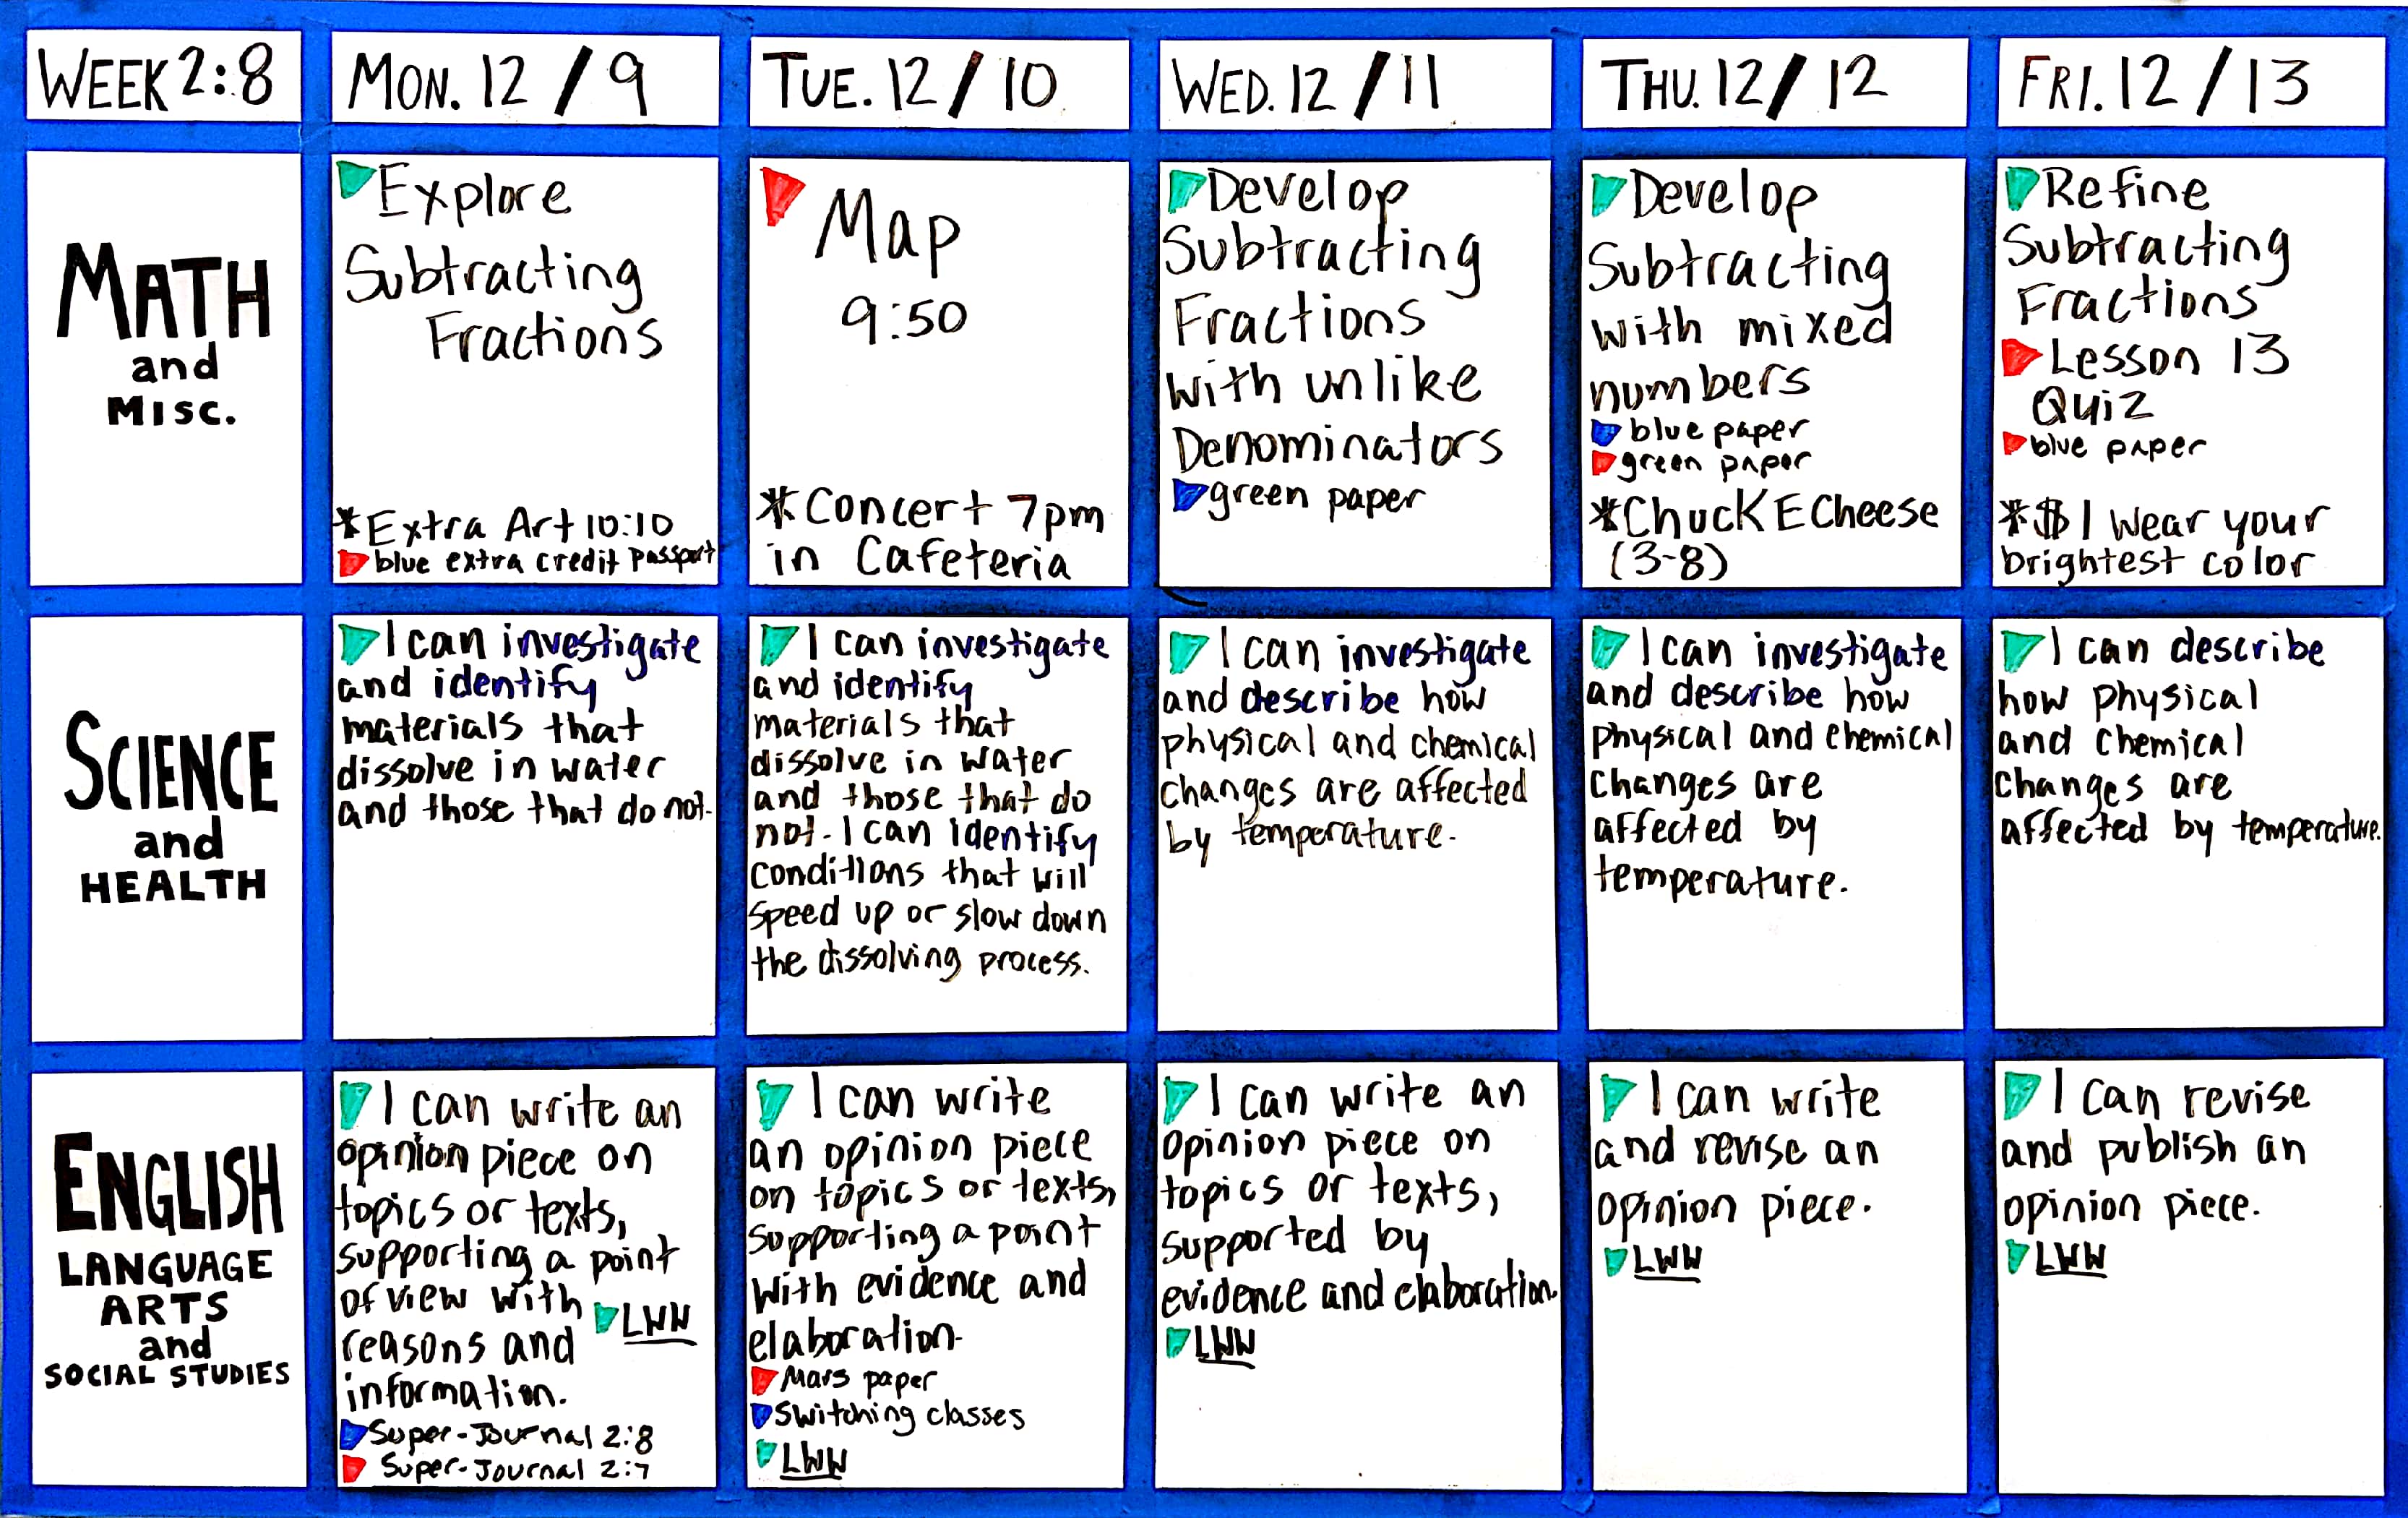 WEEK 2:8
MON. 12/9
TUE. 12/10
WED. 12/11
THU. 12/12
FRI. 12/13
MATH
and
MISC.
Explore
Subtracting
Fractions
*Extra Art 10:10
blue extra credit passport
Map
9:50
*Concert 7pm
in Cafeteria
Develop
Subtracting
Fractions
with unlike
Denominators
green paper
Develop
Subtracting
with mixed
numbers
blue paper
green paper
*Chuck E Cheese
(3-8)
Refine
Subtracting
Fractions
Lesson 13
Quiz
blue paper
*$1 Wear your
brightest color
SCIENCE
and
HEALTH
I can investigate
and identify
materials that
dissolve in water
and those that do not.
I can investigate
and identify
materials that
dissolve in water
and those that do
not. I can identify
conditions that will
speed up or slow down
the dissolving process.
I can investigate
and describe how
physical and chemical
changes are affected
by temperature.
I can investigate
and describe how
physical and chemical
changes are
affected by
temperature.
I can describe
how physical
and chemical
changes are
affected by temperature.
ENGLISH
LANGUAGE
ARTS
and
SOCIAL STUDIES
I can write an
opinion piece on
topics or texts,
supporting a point
of view with
reasons and
information.
LWW
Super-Journal 2:8
Super-Journal 2:7
I can write
an opinion piece
on topics or texts,
supporting a point
with evidence and
elaboration.
Mars paper
Switching classes
LWW
I can write an
opinion piece on
topics or texts,
supported by
evidence and elaboration.
LWW
I can write
and revise an
opinion piece.
LWW
I can revise
and publish an
opinion piece.
LWW